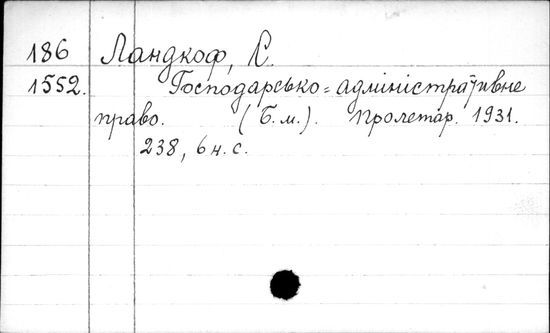 186 Ландкоф, С.
1552. Господарсько=адміністративне
право. (Б.м.). Пролетар. 1931.
238, 6 н. с.